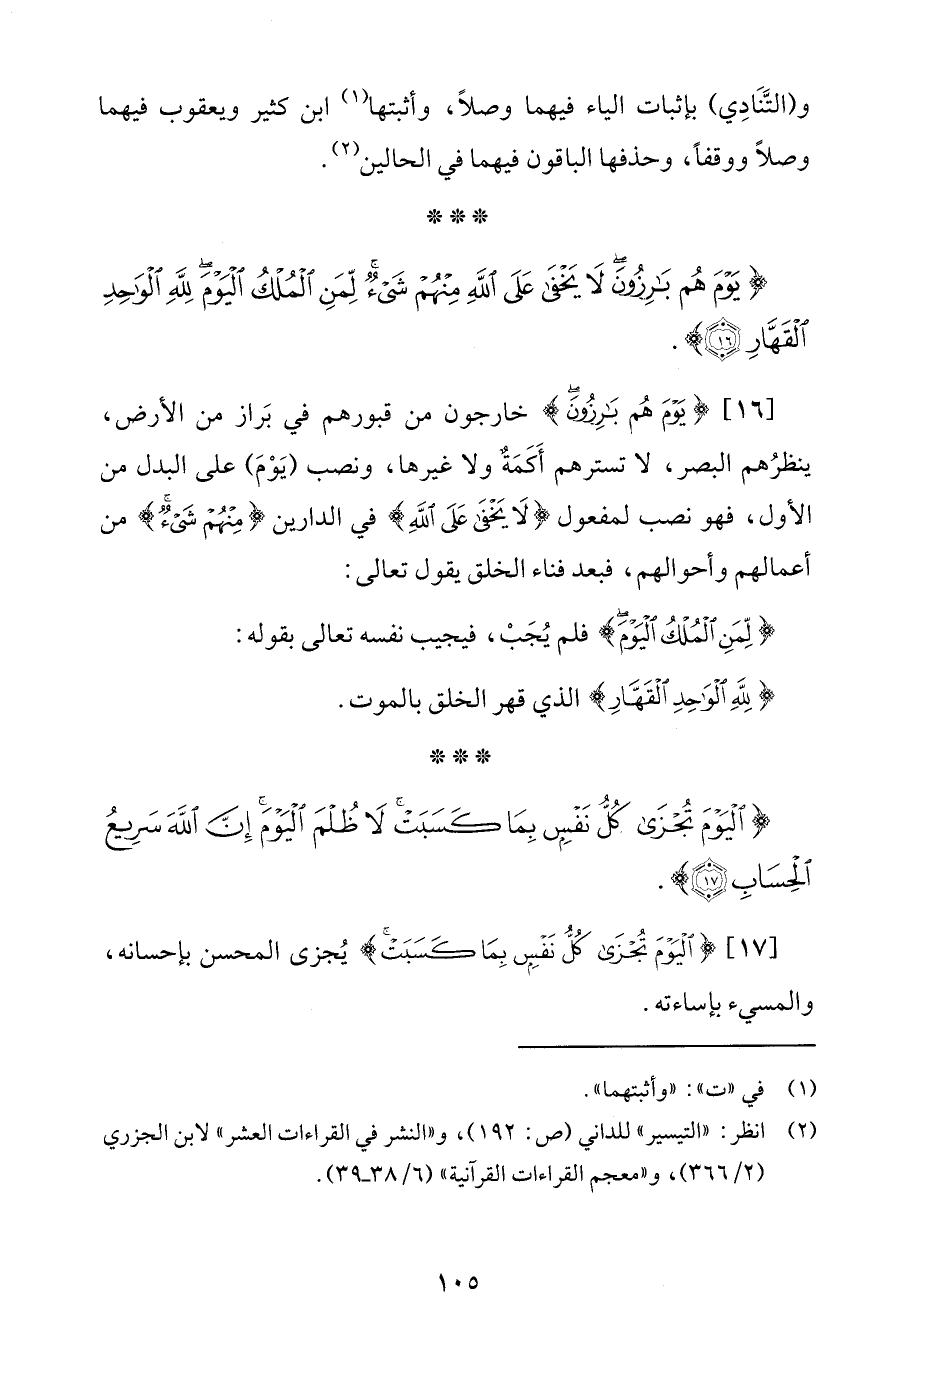 و(التَّنَادِي) بإثبات الياء فيهما وصلاً، وأثبتها(١) ابن كثير ويعقوب فيهما
وصلاً ووقفاً، وحذفها الباقون فيهما في الحالين(٢).
* * *
﴿يَوْمَ هُم بَٰرِزُونَۖ لَا يَخْفَىٰ عَلَى ٱللَّهِ مِنْهُمْ شَىْءٌۚ لِّمَنِ ٱلْمُلْكُ ٱلْيَوْمَۖ لِلَّهِ ٱلْوَٰحِدِ
ٱلْقَهَّارِ ١٦﴾.
[١٦] ﴿يَوْمَ هُم بَٰرِزُونَۖ﴾ خارجون من قبورهم في بَراز من الأرض،
ينظرُهم البصر، لا تسترهم أَكَمَةٌ ولا غيرها، ونصب (يَوْمَ) على البدل من
الأول، فهو نصب لمفعول ﴿لَا يَخْفَىٰ عَلَى ٱللَّهِ﴾ في الدارين ﴿مِنْهُمْ شَىْءٌۚ﴾ من
أعمالهم وأحوالهم، فبعد فناء الخلق يقول تعالى:
﴿لِّمَنِ ٱلْمُلْكُ ٱلْيَوْمَۖ﴾ فلم يُجَبْ، فيجيب نفسه تعالى بقوله:
﴿لِلَّهِ ٱلْوَٰحِدِ ٱلْقَهَّارِ﴾ الذي قهر الخلق بالموت.
* * *
﴿ٱلْيَوْمَ تُجْزَىٰ كُلُّ نَفْسٍۭ بِمَا كَسَبَتْۚ لَا ظُلْمَ ٱلْيَوْمَۚ إِنَّ ٱللَّهَ سَرِيعُ
ٱلْحِسَابِ ١٧﴾.
[١٧] ﴿ٱلْيَوْمَ تُجْزَىٰ كُلُّ نَفْسٍۭ بِمَا كَسَبَتْۚ﴾ يُجزى المحسن بإحسانه،
والمسيء بإساءته.
(١) في «ت»: «وأثبتهما».
(٢) انظر: «التيسير» للداني (ص: ١٩٢)، و«النشر في القراءات العشر» لابن الجزري
(٢/ ٣٦٦)، و«معجم القراءات القرآنية» (٦/ ٣٨ـ٣٩).
١٠٥